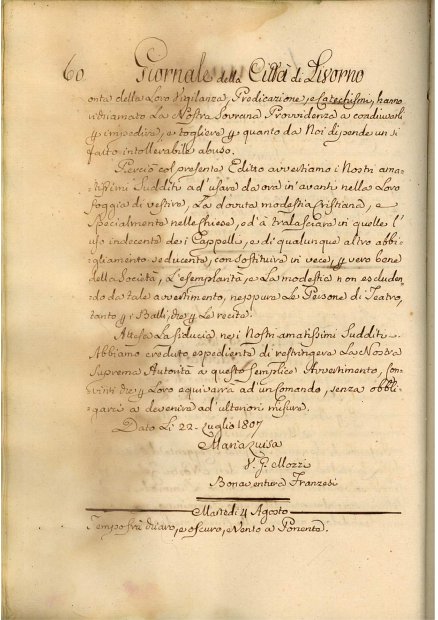 60. Giornale della Città di Livorno
onta della Loro Vigilanza, Predicazione, e Catechismi, hanno
richiamato La Nostra Sovrana Providenza a coadiuvarli
p impedire, e togliere p quanto da Noi dipende un sì
fatto intollerabile abuso.
Perciò col presente Editto avvertiamo i Nostri ama-
tissimi Sudditi ad' usare da ora in' avanti nella Loro
foggia di vestire, La dovuta modestia Cristiana, e
specialmente nelle Chiese, ed' à tralasciare in quelle l'
uso indecente dei Cappelli, e di qualunque altro abbi-
gliamento seducente, con sostituire in vece, p vero bene
della Società, L'esemplarità, e La modestia non escluden-
do da tale avvertimento, neppure Le Persone di Teatro,
tanto p i Balli, che p Le recite.
Attesa La fiducia nei Nostri amatissimi Sudditi
Abbiamo creduto espediente di restringere La Nostra
Suprema Autorità a questo semplice Avvertimento, Con-
vinti che p Loro equivarrà ad un Comando, senza obbli-
garci a devenire ad' ulteriori misure.
Dato Li 22. Luglio 1807
Maria Luisa
V. G. Mozzi
Bonaventura Franzesi
Martedì 4 Agosto
Tempo frà chiaro, e oscuro, e Vento a Ponente.